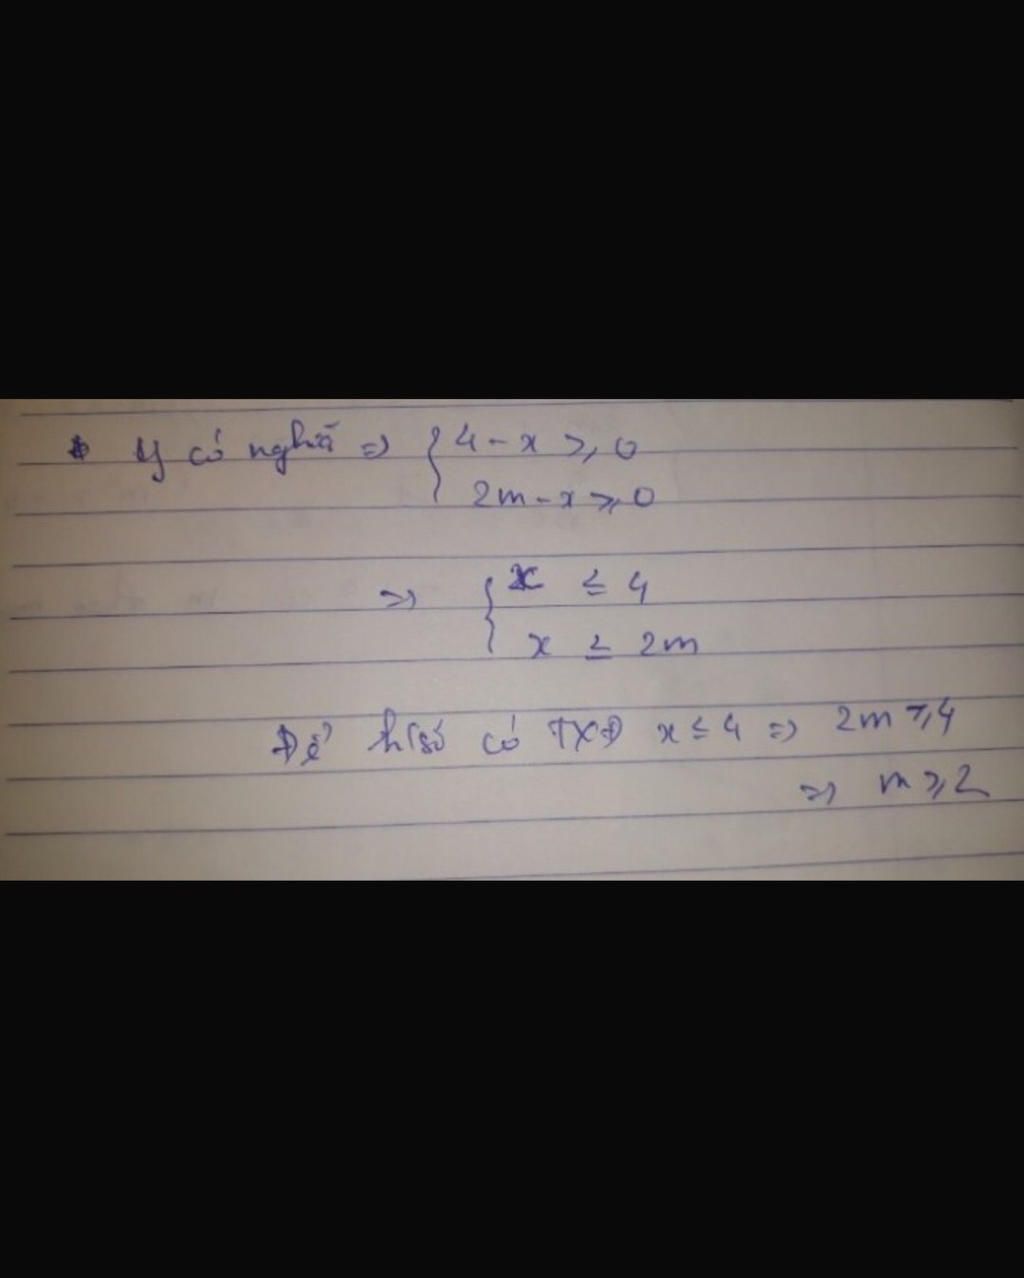 y có nghĩã => { 4 - x ≥ 0
2m - x ≥ 0
=> { x ≤ 4
x ≤ 2m
Để h/số có TXĐ x ≤ 4 => 2m ≥ 4
=> m ≥ 2